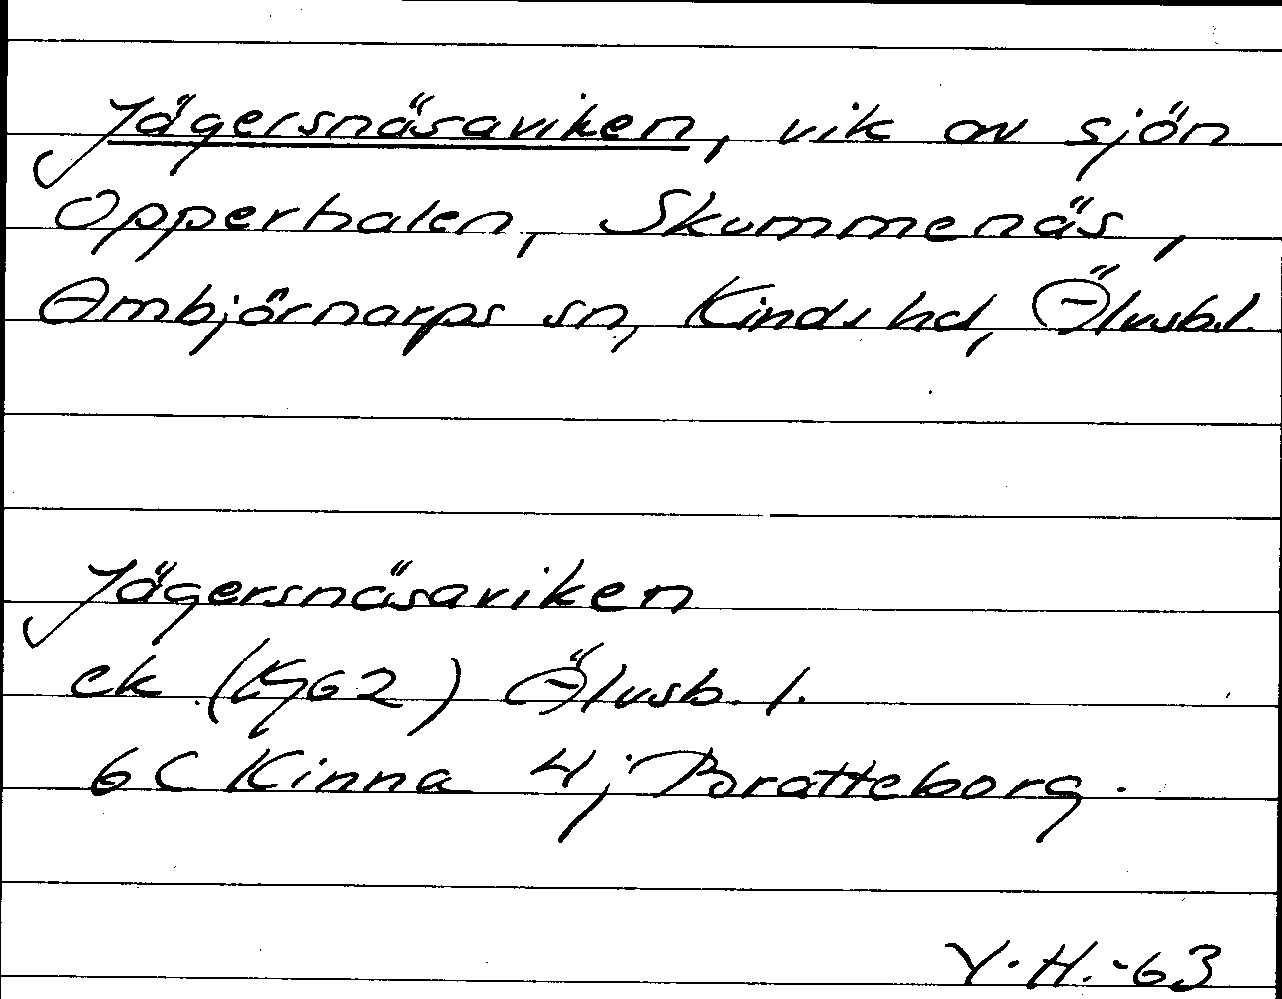 Jägersnäsaviken, vik av sjön
Opperhalen, Skummenäs,
Ambjörnarps sn, Kinds hd, Älvsb.l.
Jägersnäsaviken
ek (1962) Älvsb. l.
6 C Kinna 4j Bratteborg.
Y. H. -63